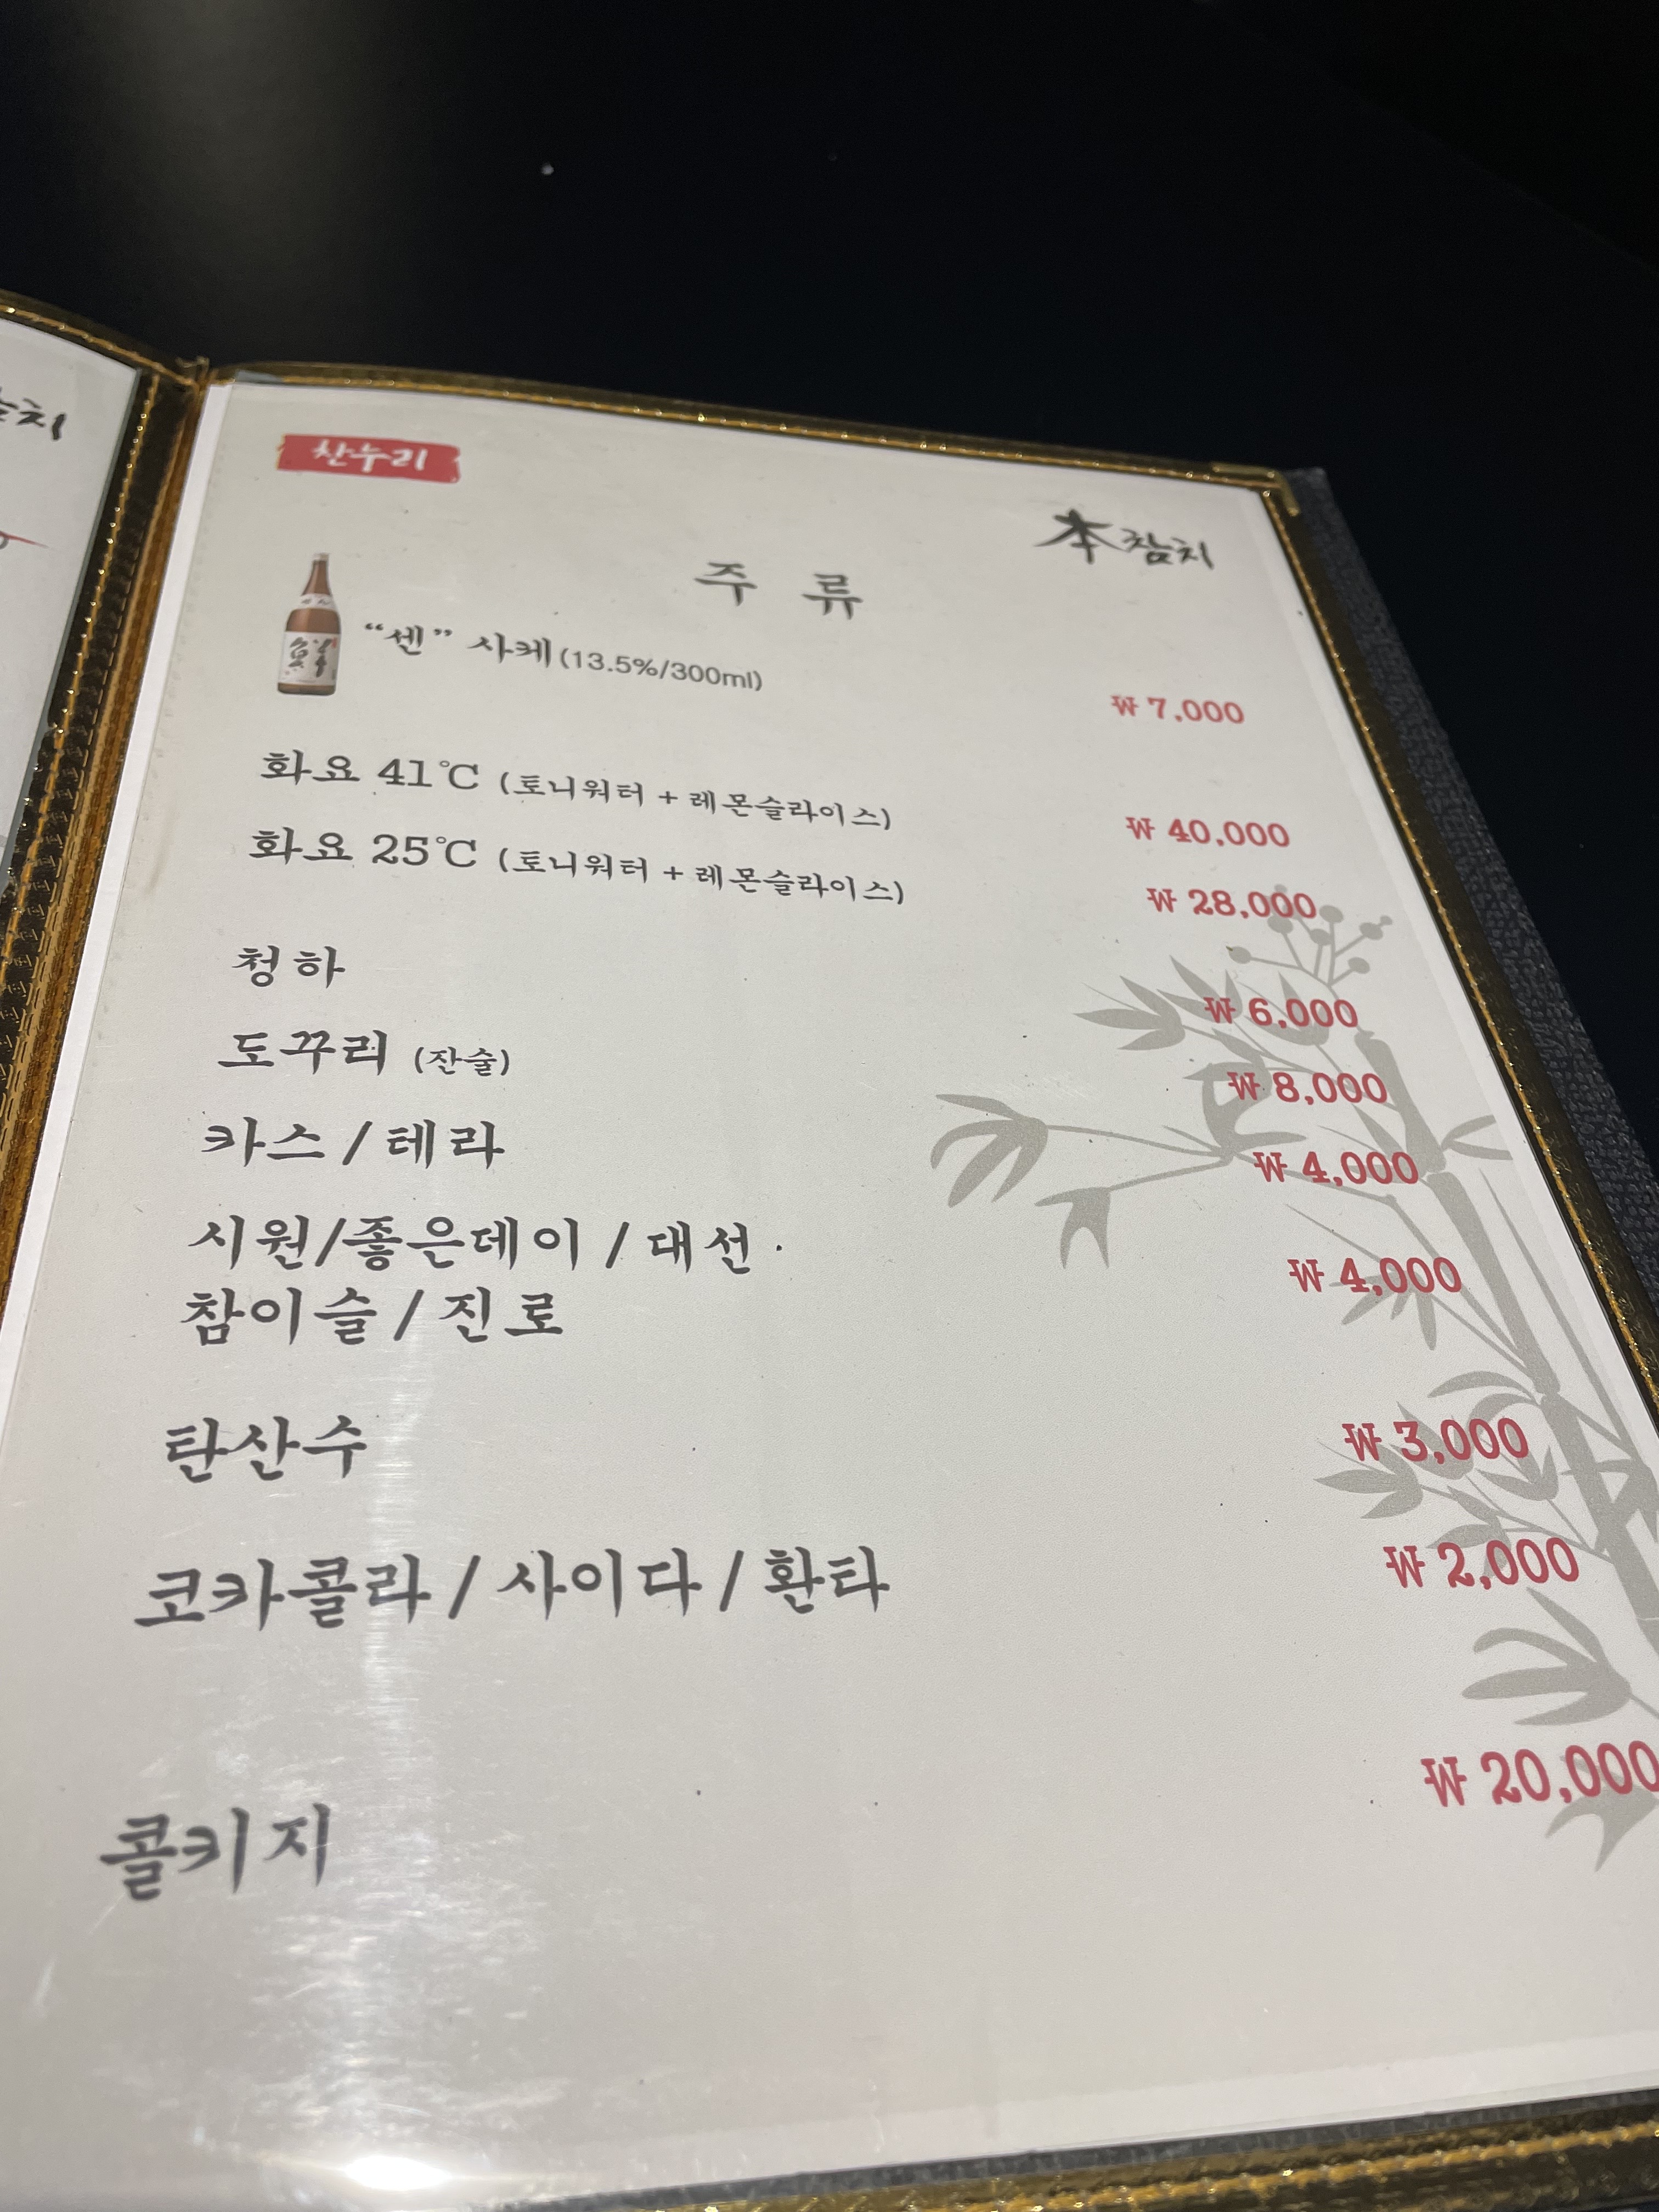 찬누리
本참치
주 류
“센” 사케(13.5%/300ml) ₩ 7,000
화요 41℃ (토니워터 + 레몬슬라이스) ₩ 40,000
화요 25℃ (토니워터 + 레몬슬라이스) ₩ 28,000
청하 ₩ 6,000
도꾸리 (잔술) ₩ 8,000
카스 / 테라 ₩ 4,000
시원/좋은데이 / 대선 ₩ 4,000
참이슬 / 진로
탄산수 ₩ 3,000
코카콜라 / 사이다 / 환타 ₩ 2,000
콜키지 ₩ 20,000